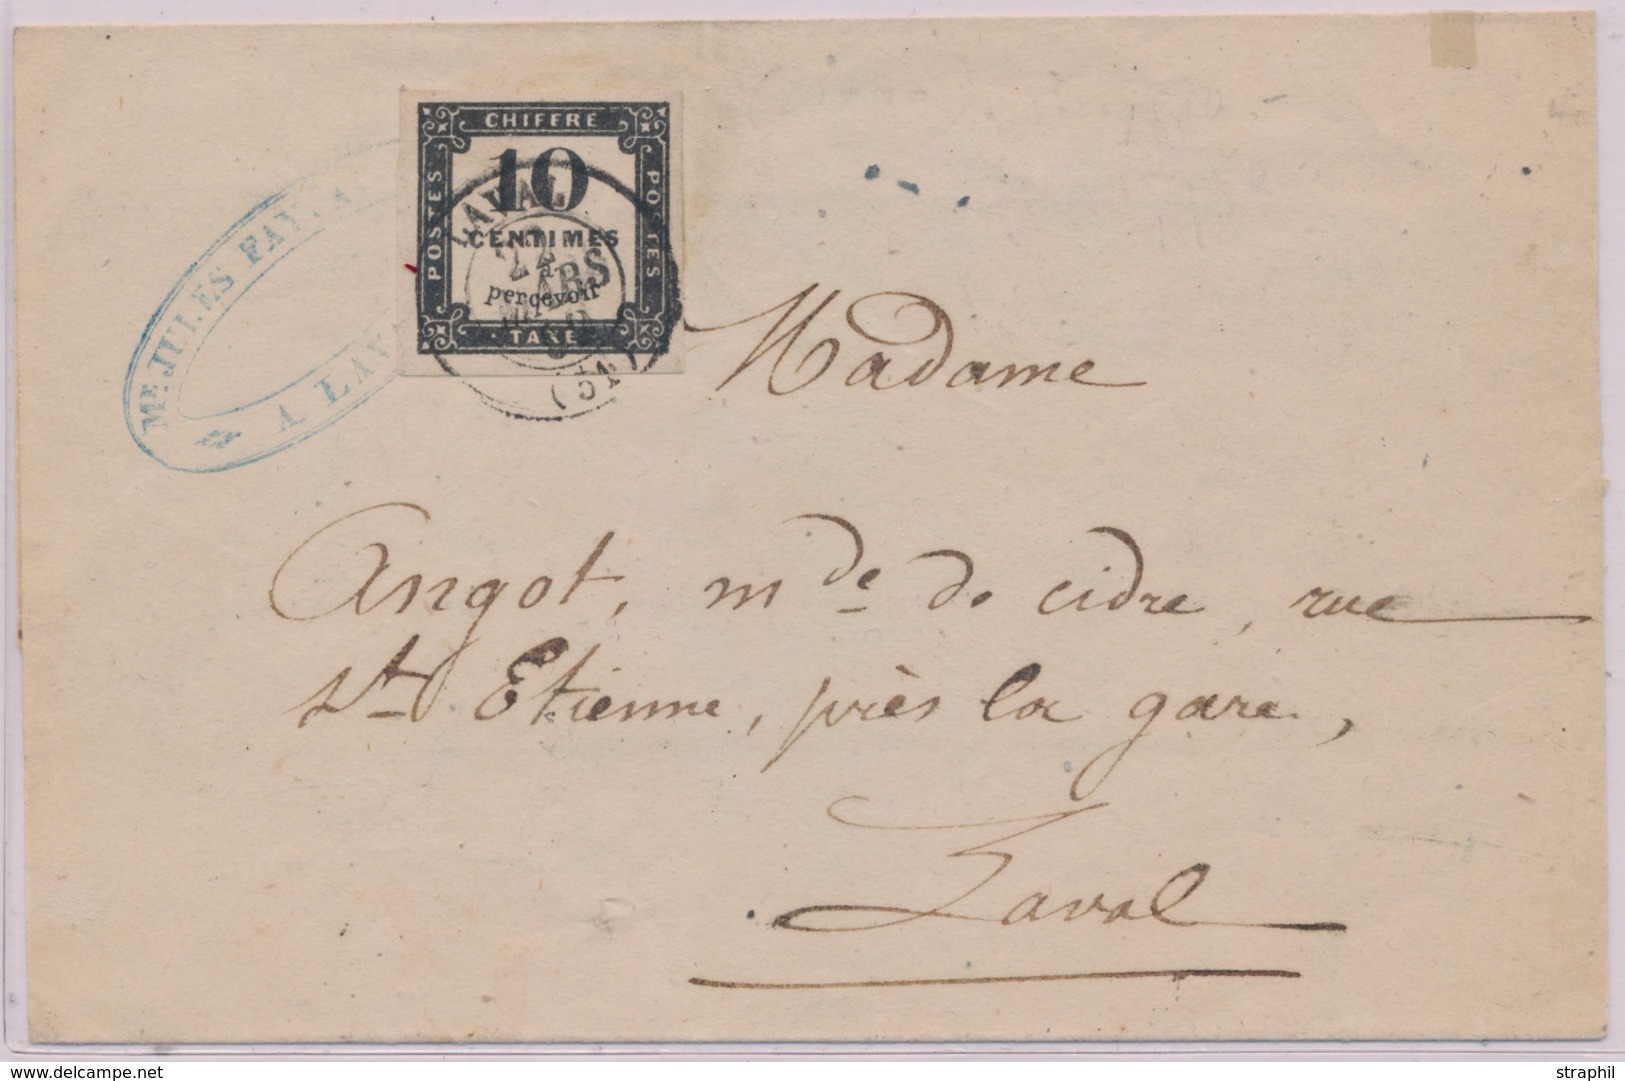 CHIFFRE
POSTES
10
CENTIMES
à
percevoir
TAXE
POSTES
LAVAL
22
MARS
(51)
ME. JULES FAY
A LAV
Madame
Angot, mde de cidre, rue
St Etienne, près la gare,
Laval
www.delcampe.net
straphil